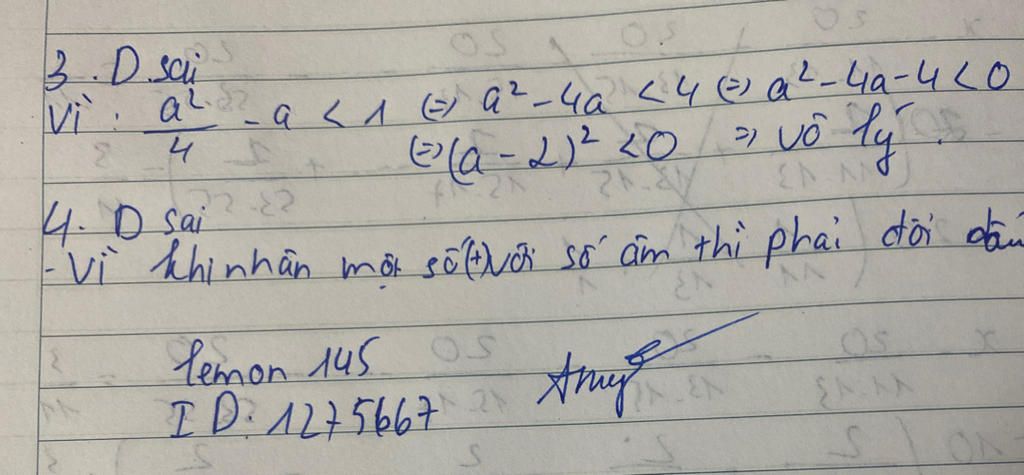 3. D sai
Vì: a²/4 - a < 1 (=) a² - 4a < 4 (=) a² - 4a - 4 < 0
(=) (a - 2)² < 0 => vô lý.
4. D sai
- Vì khi nhân một số (+) với số âm thì phải đổi dấu
lemon 145
ID: 1275667
Amy